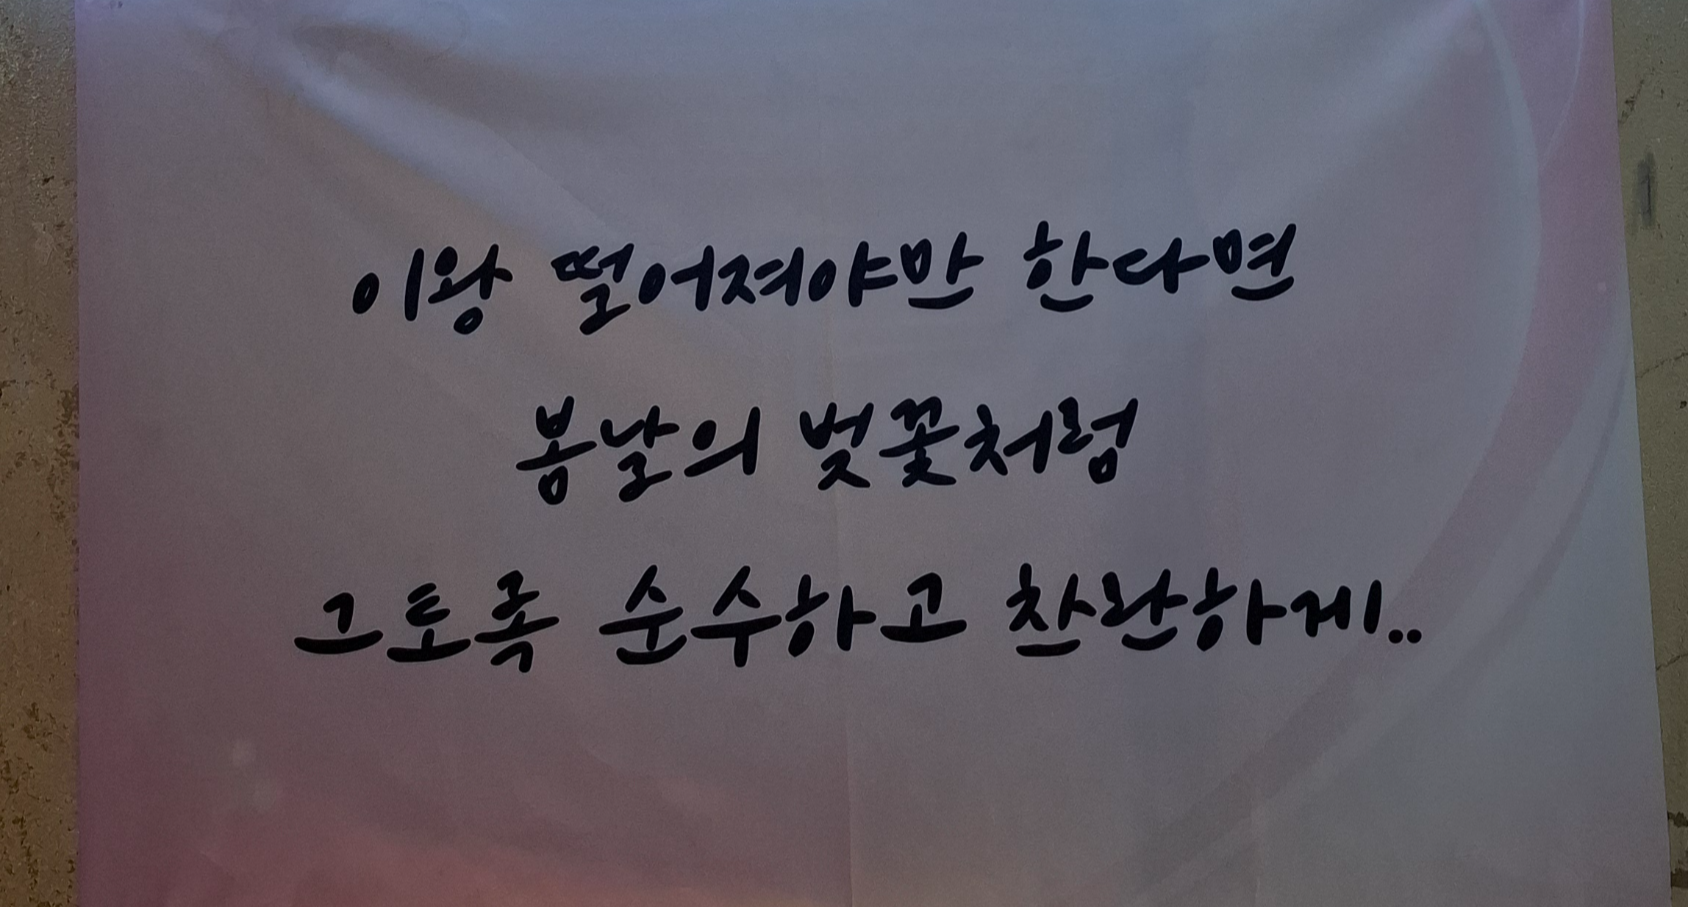 이왕 떨어져야만 한다면
봄날의 벚꽃처럼
그토록 순수하고 찬란하게..